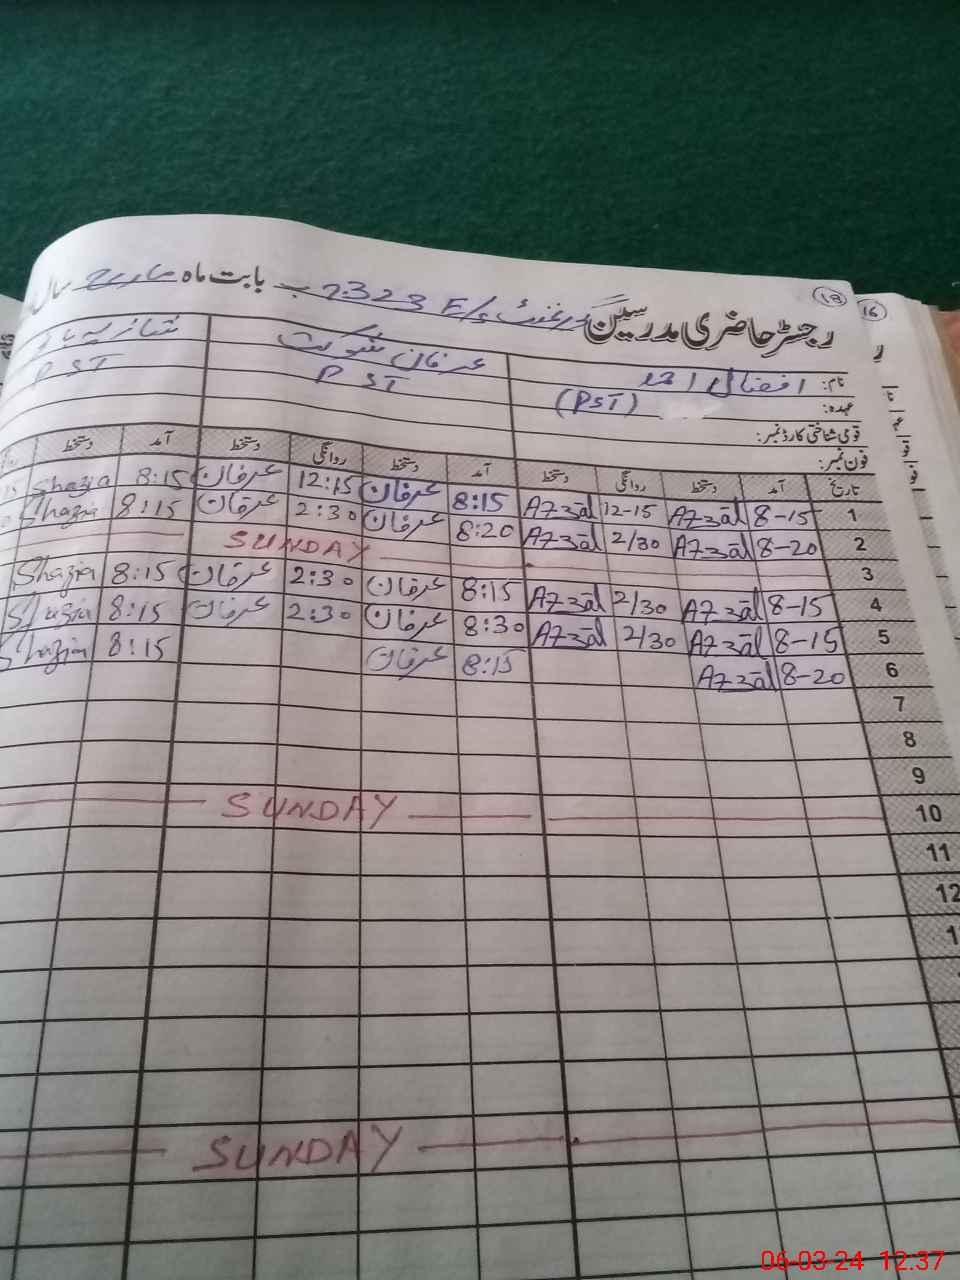 18
16
رجسٹر حاضری مدرسین گورنمنٹ E/S 323 ب بابت ماہ مارچ سال
نام: افضال احمد
عرفان شوکت
شازیہ
عہدہ: (PST)
PST
PST
قومی شناختی کارڈ نمبر:
فون نمبر:
تاریخ آمد دستخط روانگی دستخط آمد دستخط روانگی دستخط آمد دستخط
1 8-15 Afzāl 12-15 Afzāl 8:15 عرفان 12:15 عرفان 8:15 Shazia
2 8-20 Afzāl 2/30 Afzāl 8:20 عرفان 2:30 عرفان 8:15 Shazia
3 SUNDAY
4 8-15 Afzāl 2/30 Afzāl 8:15 عرفان 2:30 عرفان 8:15 Shazia
5 8-15 Afzāl 2/30 Afzāl 8:30 عرفان 2:30 عرفان 8:15 Shazia
6 8-20 Afzāl 8:15 عرفان 8:15 Shazia
7
8
9
10 SUNDAY
11
12
SUNDAY
06-03-24 12:37